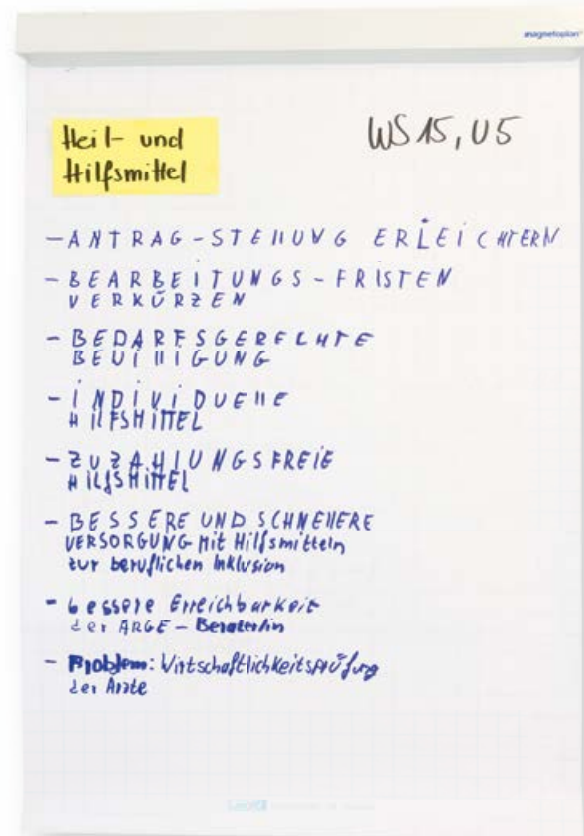 magnetoplan
Heil- und
Hilfsmittel
WS 15, U5
- ANTRAG-STELLUNG ERLEICHTERN
- BEARBEITUNGS-FRISTEN
VERKÜRZEN
- BEDARFSGERECHTE
BEWILLIGUNG
- INDIVIDUELLE
HILFSMITTEL
- ZUZAHLUNGSFREIE
HILFSMITTEL
- BESSERE UND SCHNELLERE
VERSORGUNG Mit Hilfsmitteln
zur beruflichen Inklusion
- bessere Erreichbarkeit
der ARGE-Beraterin
- Problem: Wirtschaftlichkeitsprüfung
der Ärzte